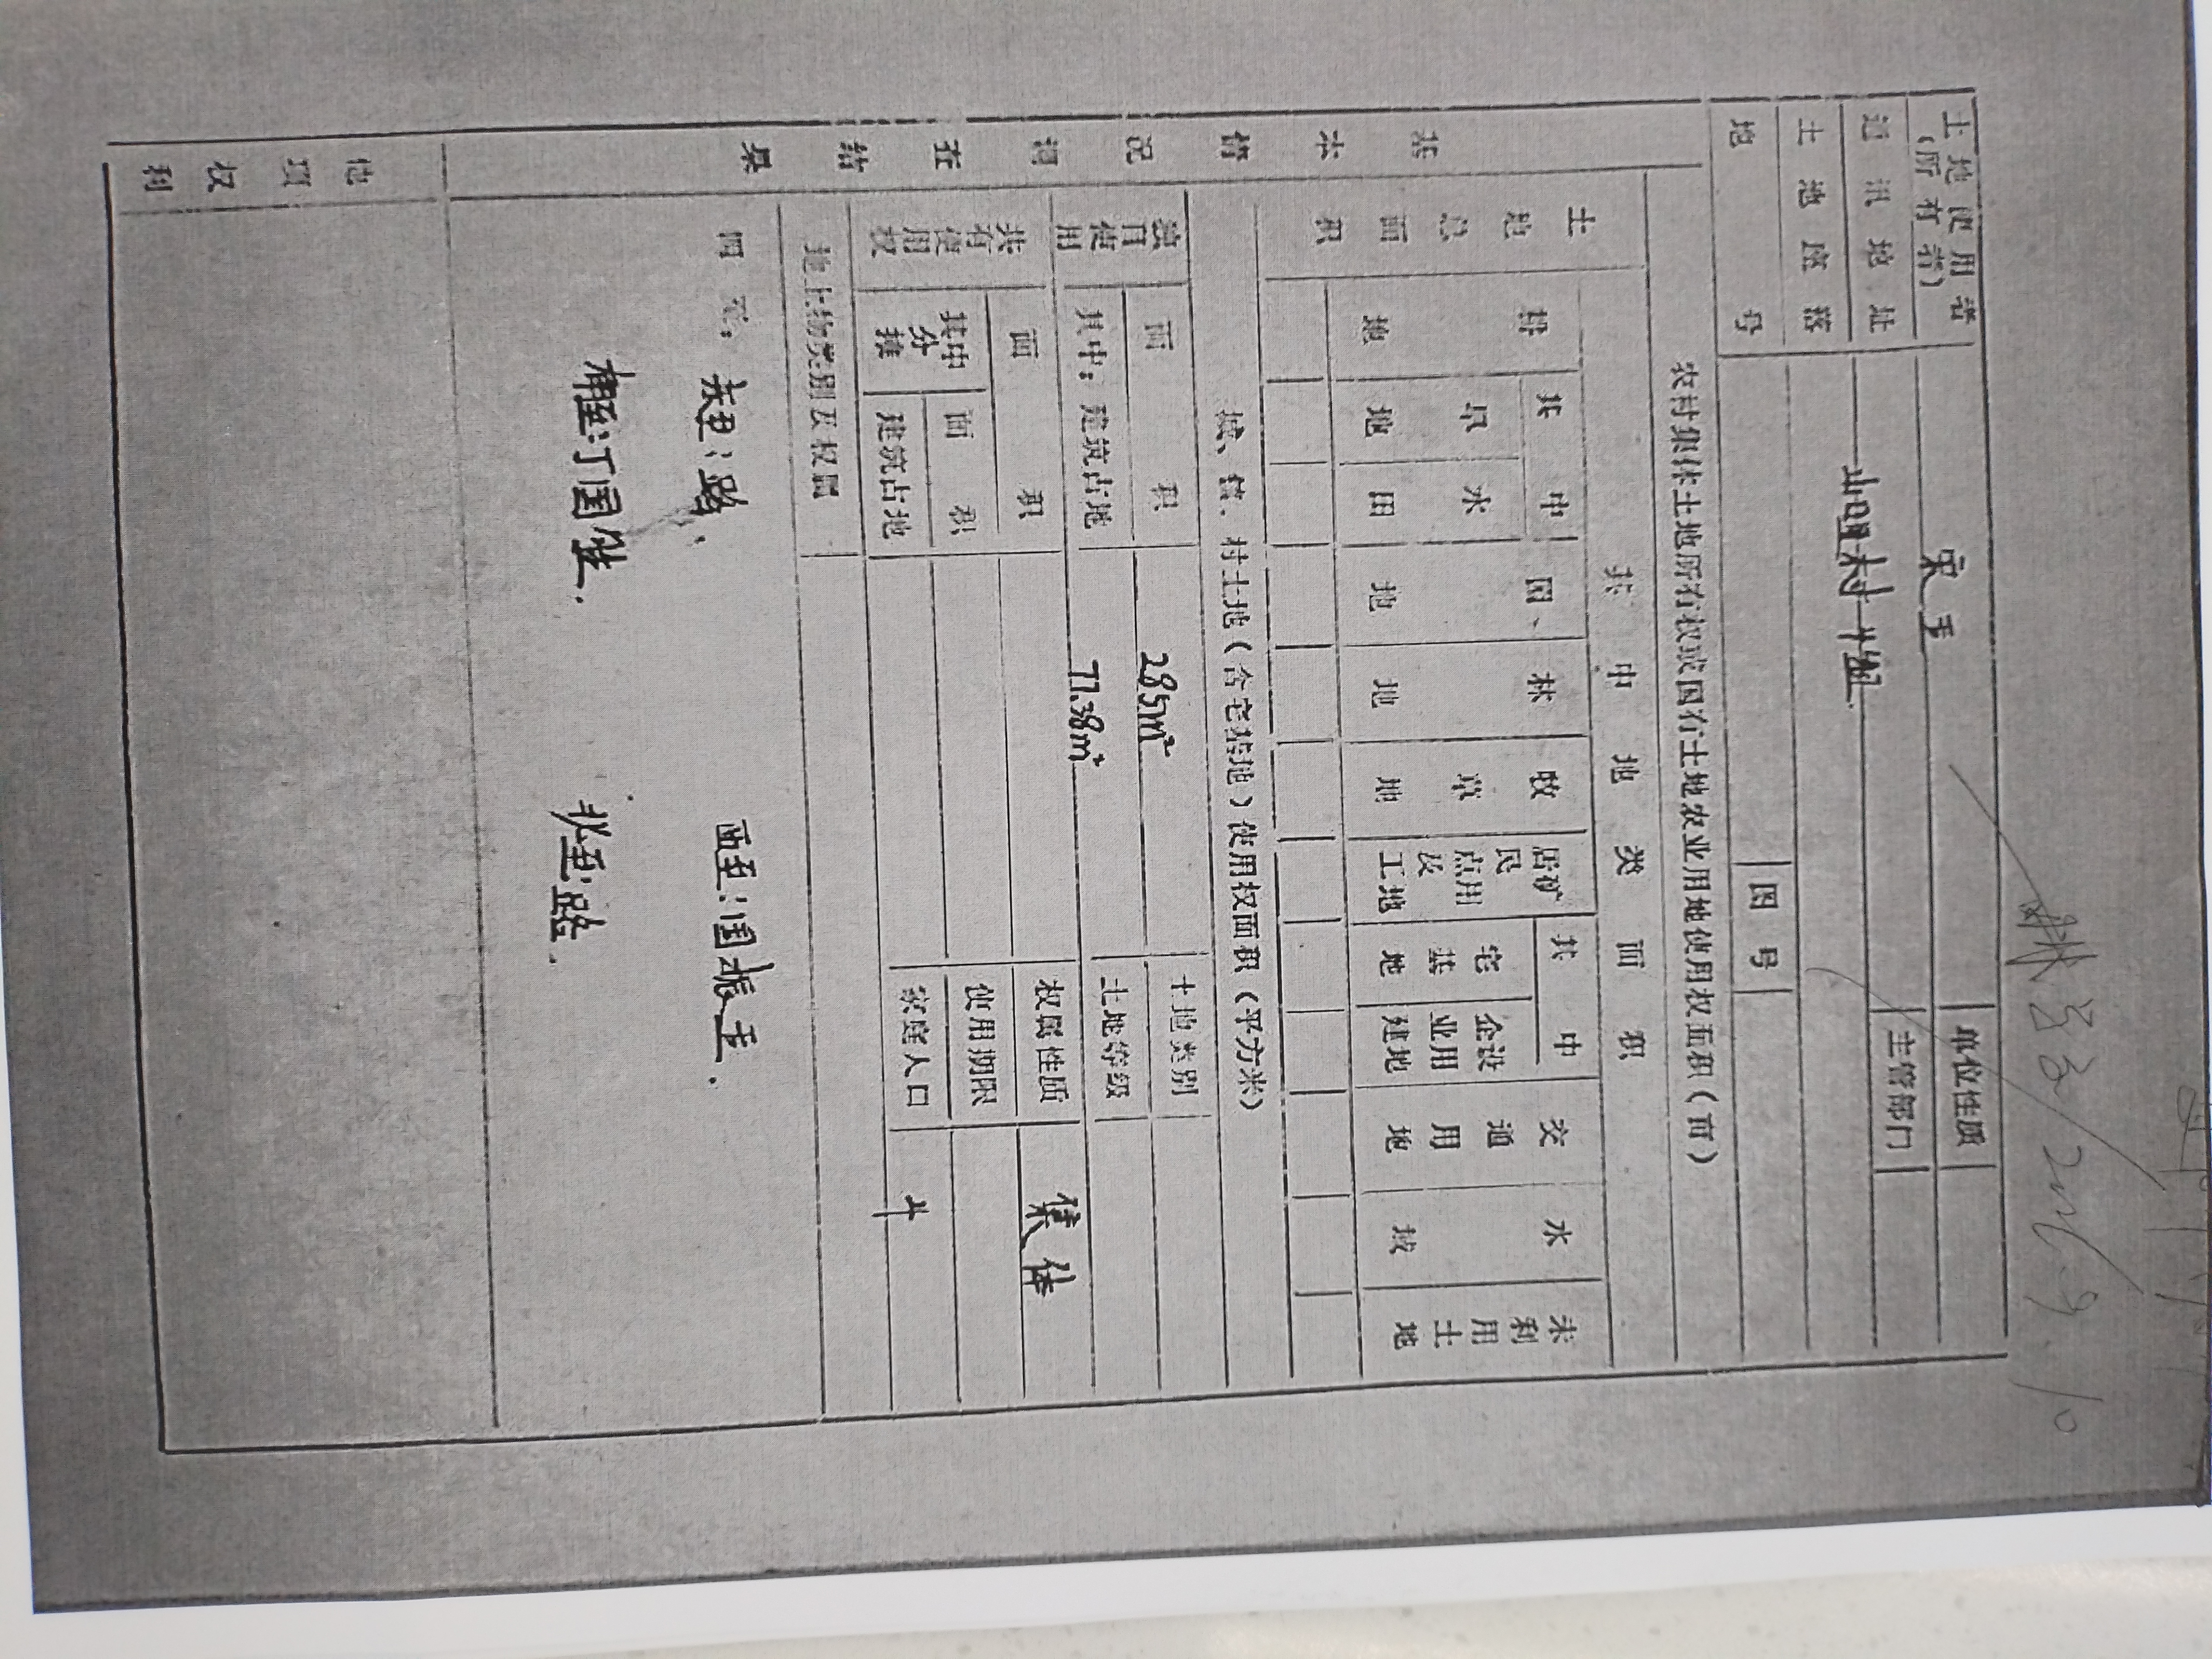 土地使用者
（所有者）
宋玉
单位性质
通讯地址
主管部门
土地座落
地号
图号
农村集体土地所有权或国有土地农业用地使用权面积（亩）
基本情况调查结果
土地总面积
其中地类面积
耕地
其中
旱地
水田
园地
林地
牧草地
居民点及工矿用地
其中
宅基地
企业建设用地
交通用地
水域
未利用土地
城、镇、村土地（含宅基地）使用权面积（平方米）
独自使用
面积
285m²
土地类别
其中：建筑占地
77.38m²
土地等级
共有使用权
面积
权属性质
集体
其中分摊
面积
使用期限
建筑占地
家庭人口
地上物类别及权属
四至：
东至：路.
西至：国振玉.
南至：丁国
北至：路.
他项权利